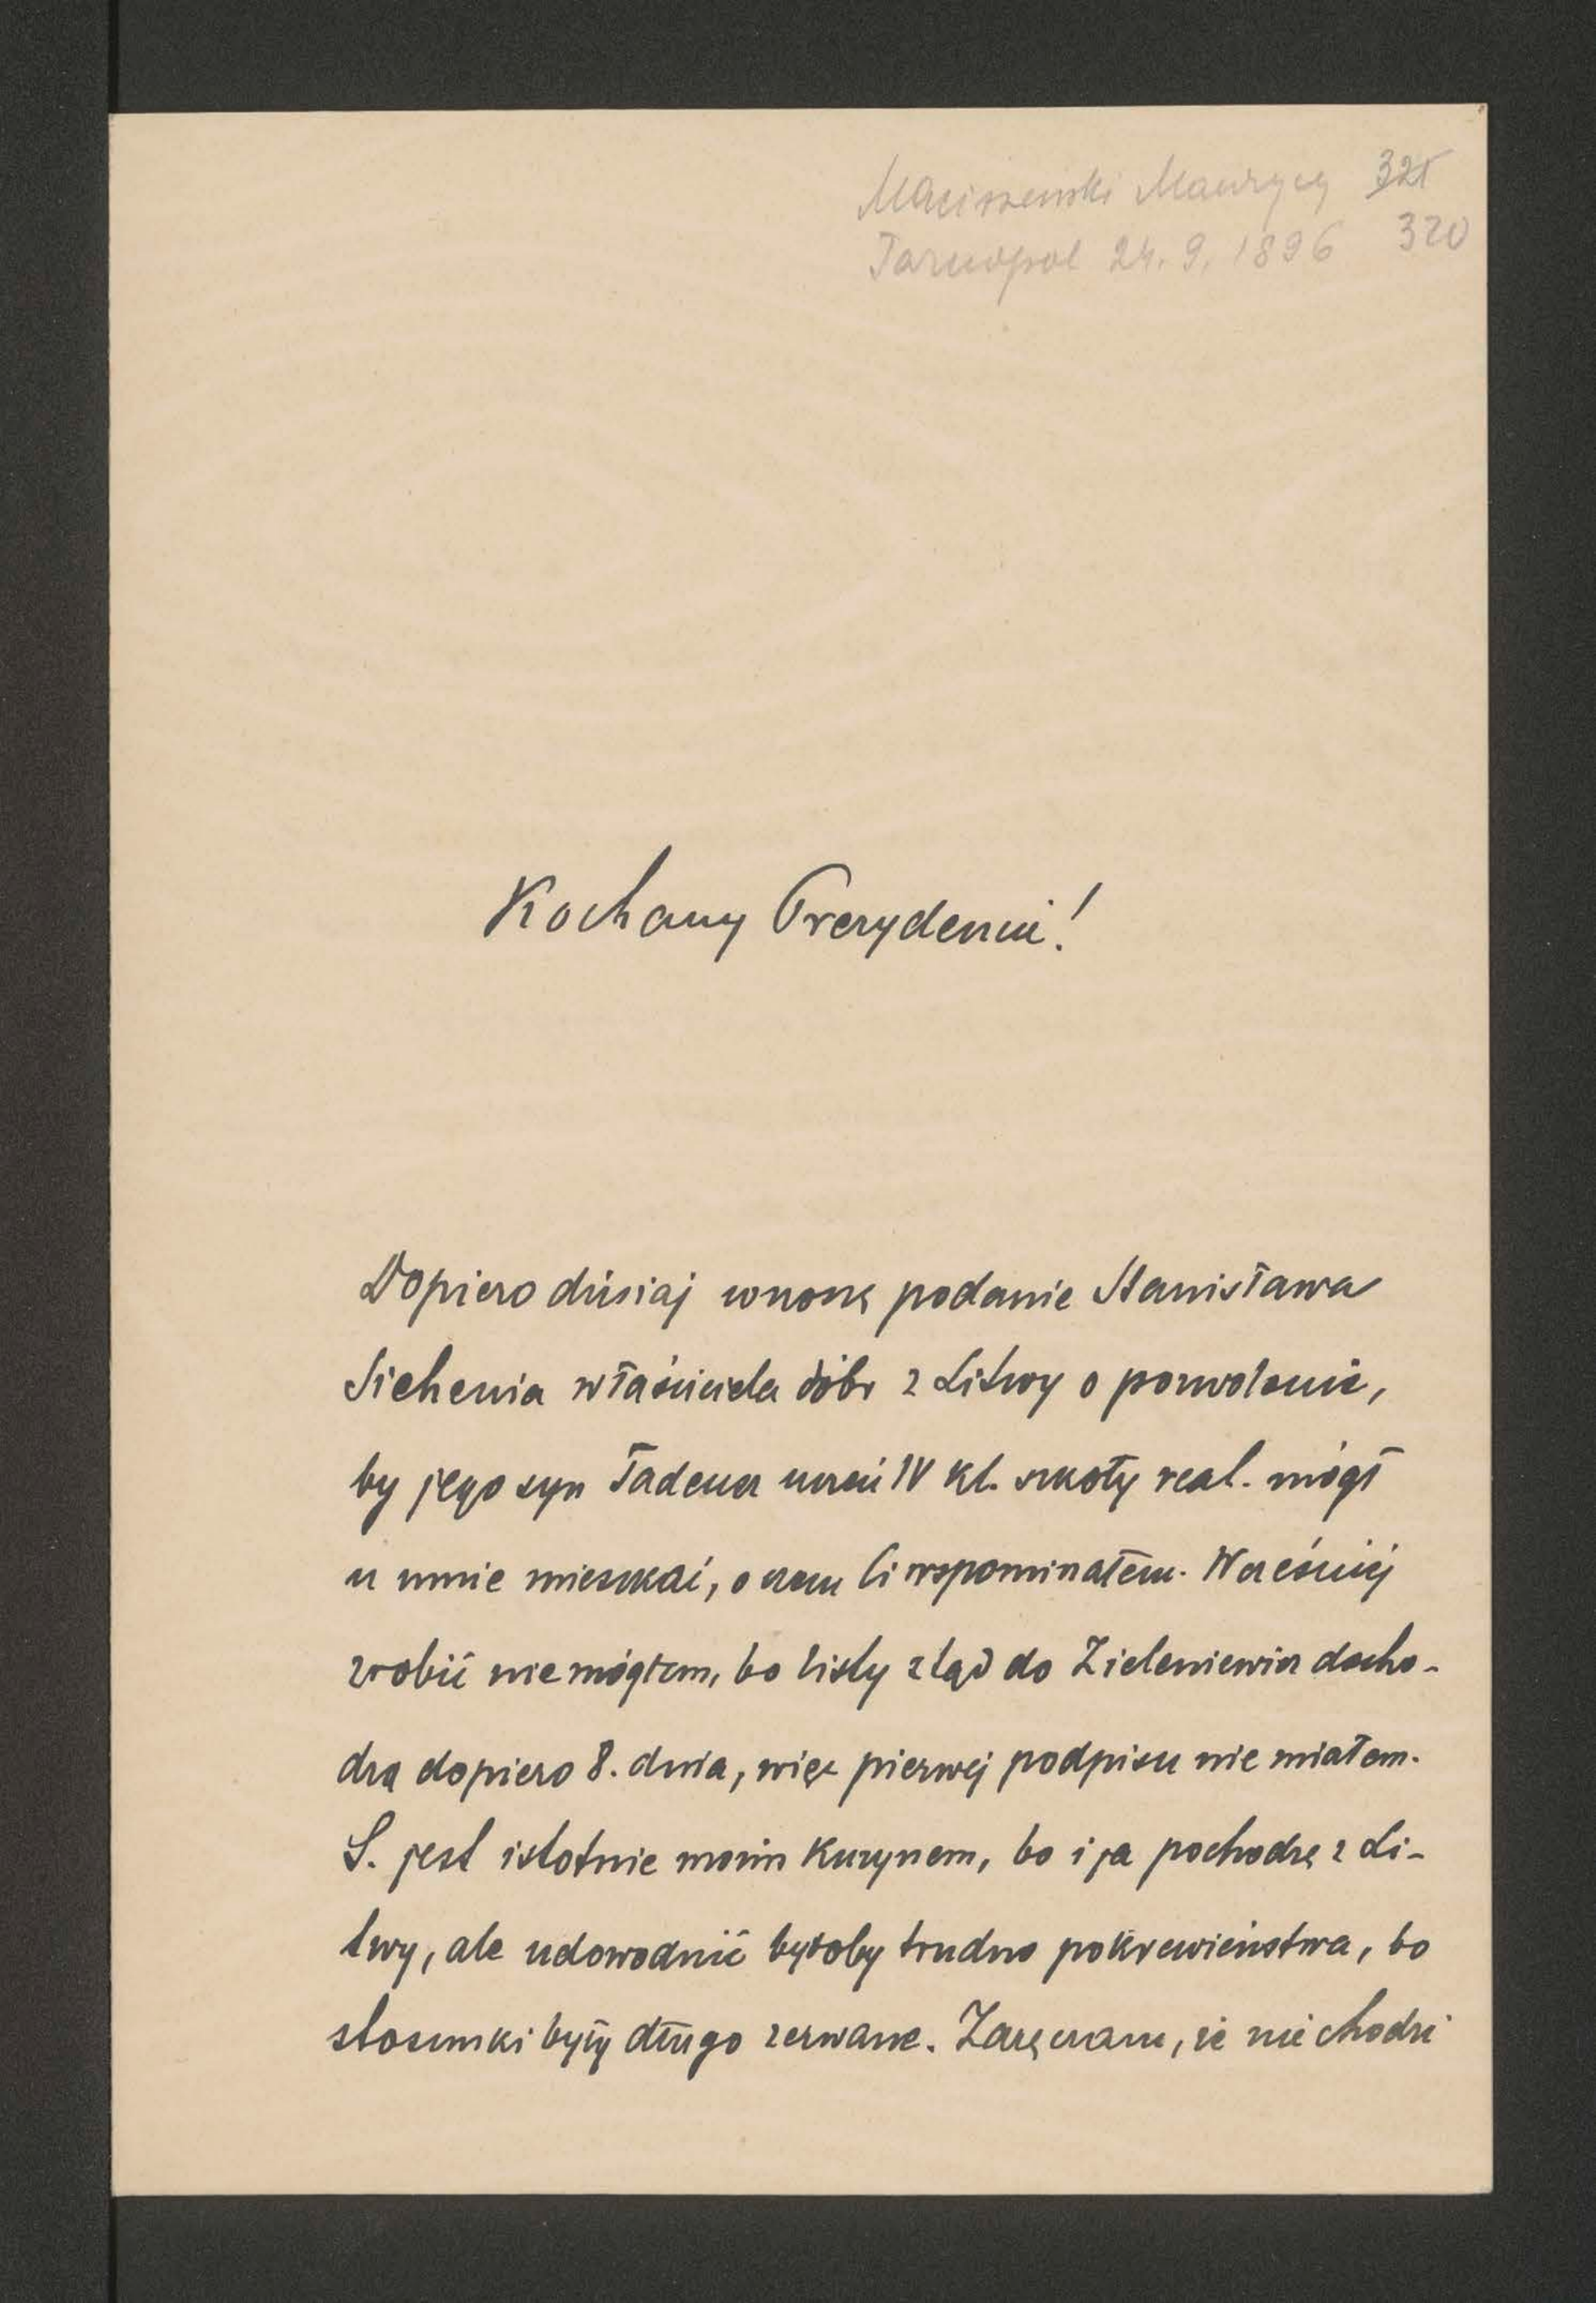 Maciszewski Maurycy 321
Tarnopol 24. 9. 1896 320
Kochany Prezydencie!
Dopiero dzisiaj wnoszę podanie Stanisława
Siehenia właściciela dóbr z Litwy o pozwolenie,
by jego syn Tadeusz uczeń IV kl. szkoły real. mógł
u mnie mieszkać, o czem Ci wspominałem. Wcześniej
zrobić nie mógłem, bo listy ztąd do Zieleniewicz docho-
dzą dopiero 8. dnia, więc pierwej podpisu nie miałem.
S. jest istotnie moim kuzynem, bo i ja pochodzę z Li-
twy, ale udowodnić byłoby trudno pokrewieństwa, bo
stosunki były długo zerwane. Zaręczam, że nie chodzi